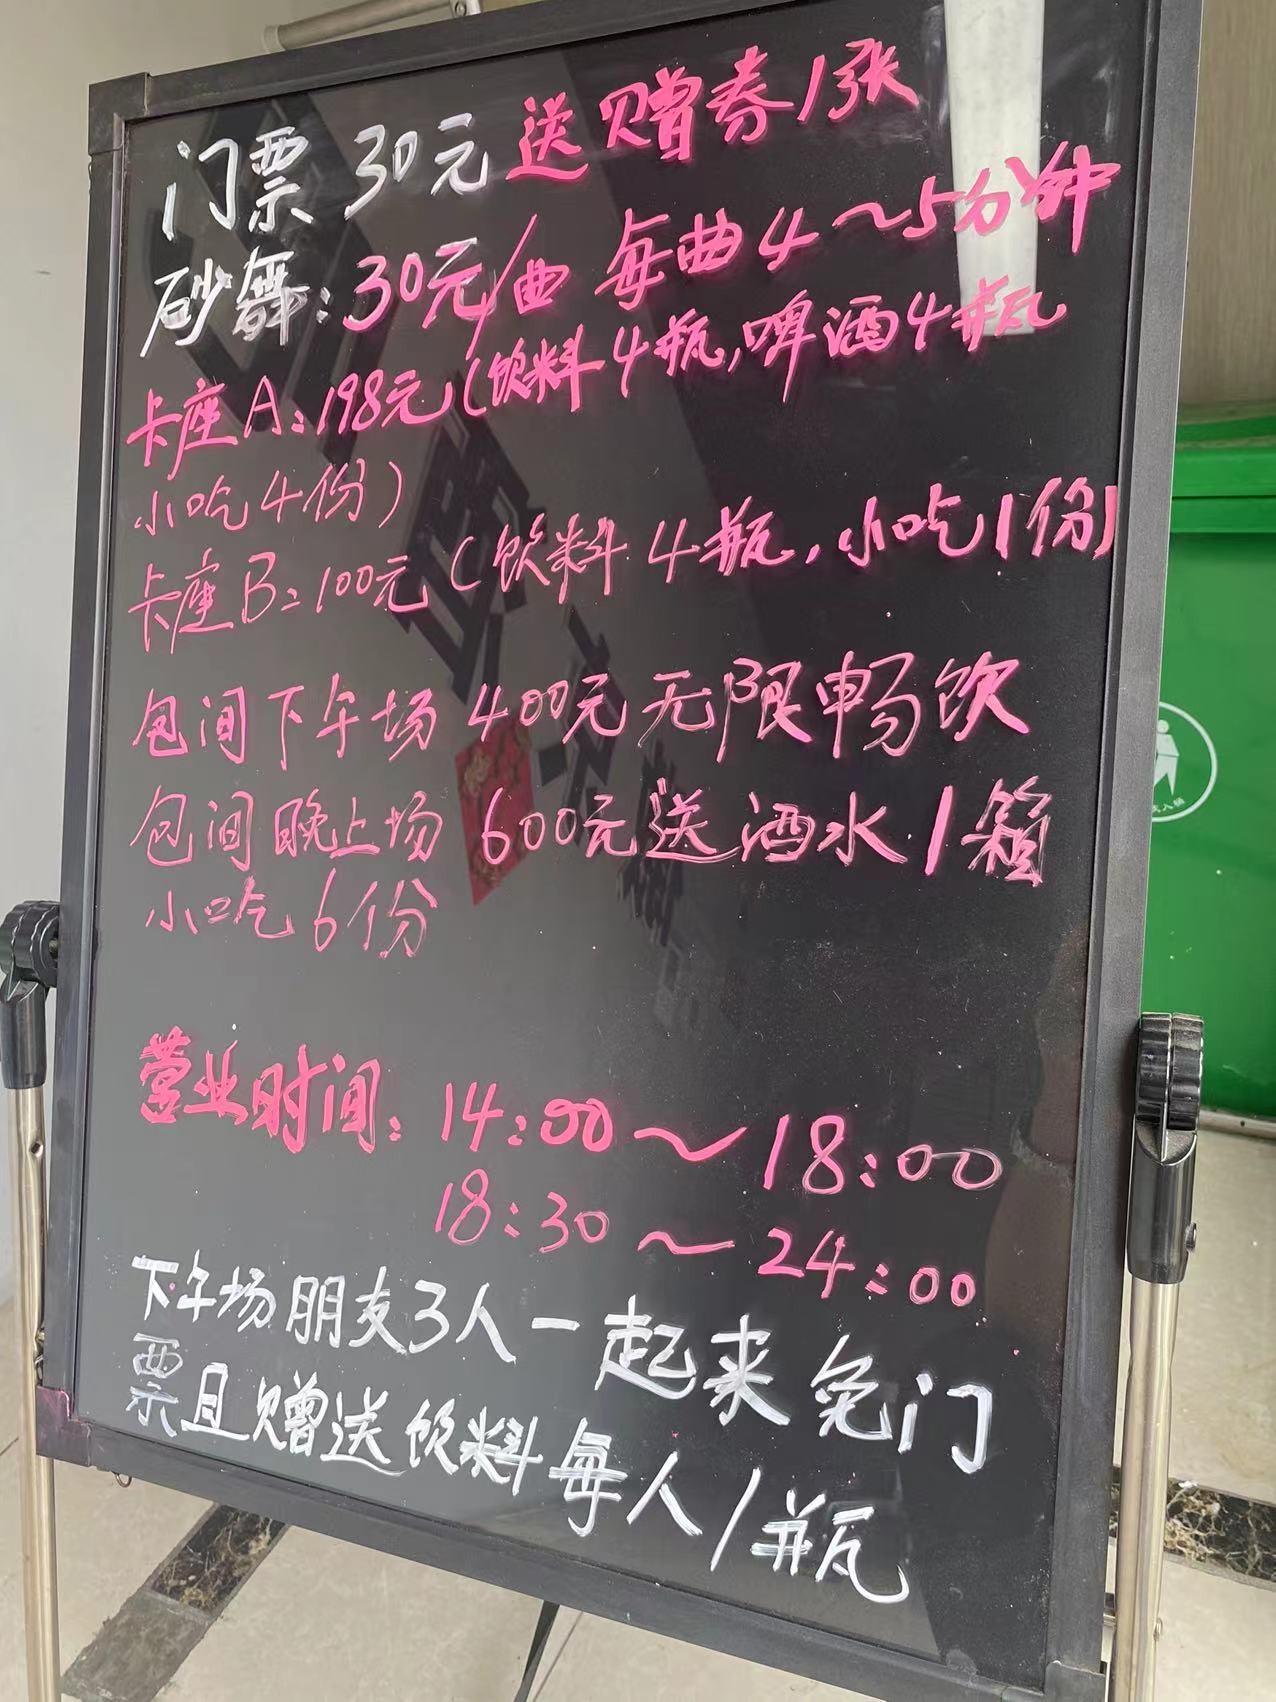 门票 30元 送赠券1张
砂舞:30元/曲 每曲4~5分钟
卡座A:198元(饮料4瓶,啤酒4瓶
小吃4份)
卡座B:100元(饮料4瓶,小吃1份)
包间下午场 400元 无限畅饮
包间晚上场 600元送酒水1箱
小吃6份
营业时间: 14:00~18:00
18:30~24:00
下午场朋友3人一起来免门
票且赠送饮料每人1瓶